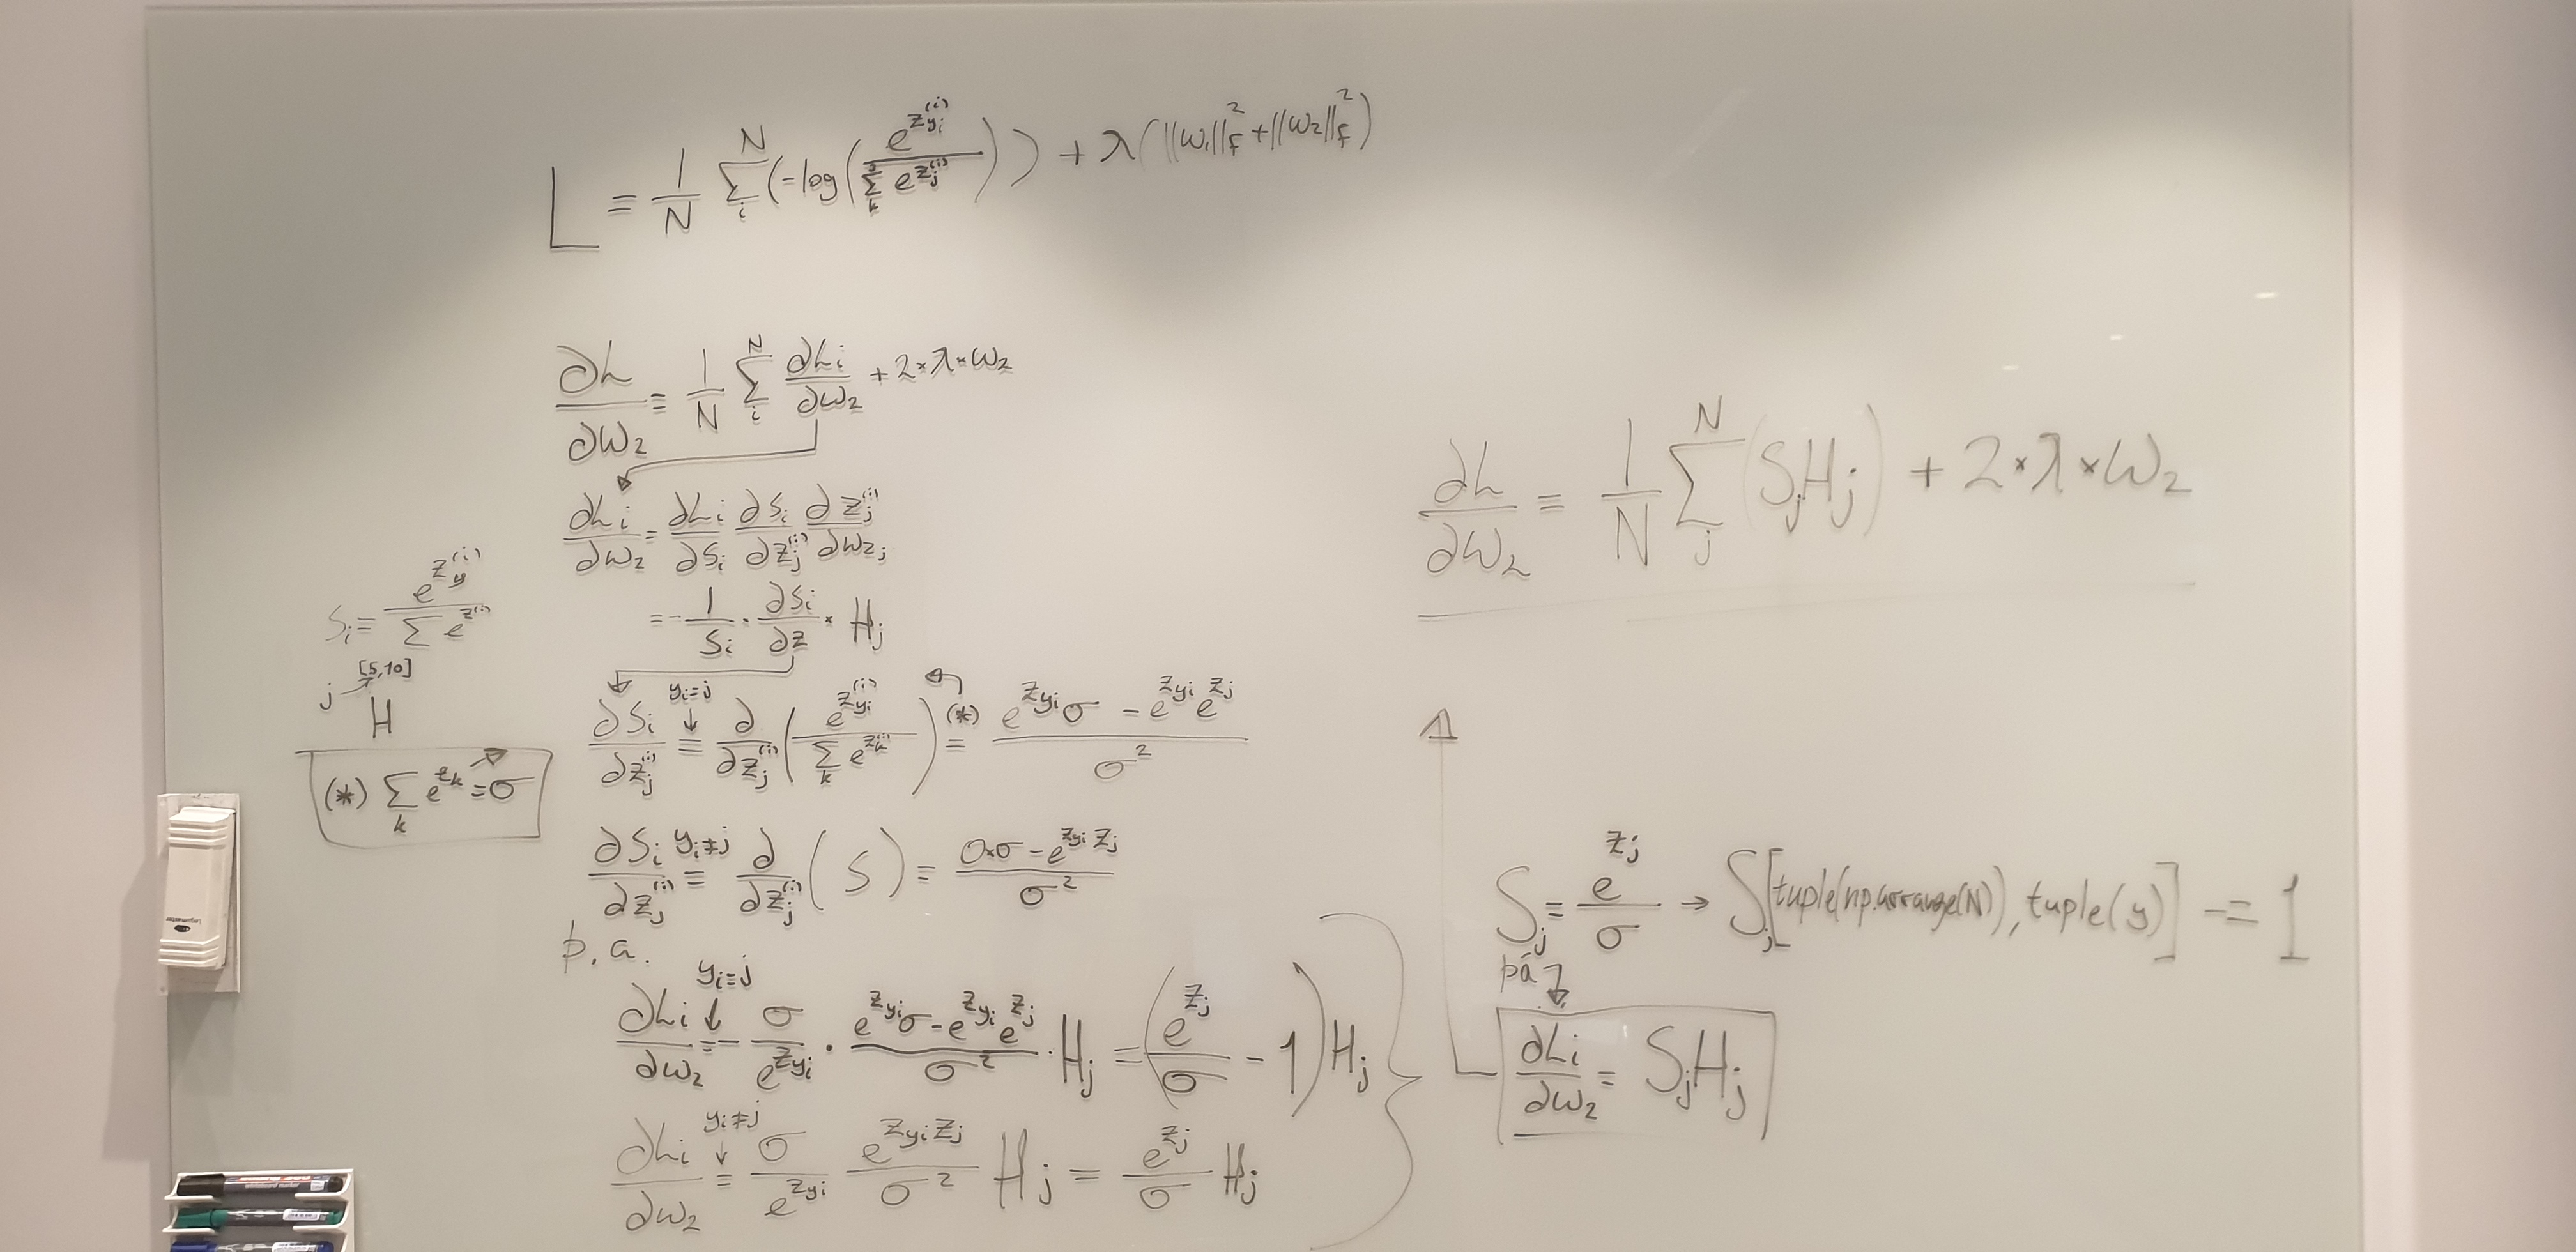 L = 1/N Σ_i^N (-log(e^{z_{y_i}^{(i)}} / Σ_k e^{z_j^{(i)}})) + λ(||w_1||_F^2 + ||w_2||_F^2)
∂L/∂w_2 = 1/N Σ_i^N ∂L_i/∂w_2 + 2×λ×w_2
∂L_i/∂w_2 = ∂L_i/∂s_i ∂s_i/∂z_j^{(i)} ∂z_j^{(i)}/∂w_{2j}
= -1/s_i · ∂s_i/∂z · H_j
s_i = e^{z_y^{(i)}} / Σ e^{z^{(i)}}
[5,10]
j
H
(*) Σ_k e^{z_k} = σ
∂s_i/∂z_j^{(i)} = y_i=j ∂/∂z_j^{(i)} (e^{z_{y_i}^{(i)}} / Σ_k e^{z_k^{(i)}}) (*) = (e^{z_{y_i}} σ - e^{z_{y_i}} e^{z_j}) / σ^2
∂s_i/∂z_j^{(i)} = y_i≠j ∂/∂z_j^{(i)} (s) = (0×σ - e^{z_{y_i} z_j}) / σ^2
þ.a.
∂L_i/∂w_2 = y_i=j - σ/e^{z_{y_i}} · (e^{z_{y_i}} σ - e^{z_{y_i}} e^{z_j}) / σ^2 · H_j = (e^{z_j}/σ - 1) H_j
∂L_i/∂w_2 = y_i≠j σ/e^{z_{y_i}} e^{z_{y_i} z_j}/σ^2 H_j = e^{z_j}/σ H_j
∂L/∂w_2 = 1/N Σ_j^N (S_j H_j) + 2×λ×w_2
S_j = e^{z_j}/σ → S_j[tuple(np.arrange(N)), tuple(y)] -= 1
þá
∂L_i/∂w_2 = S_j H_j
Legamaster